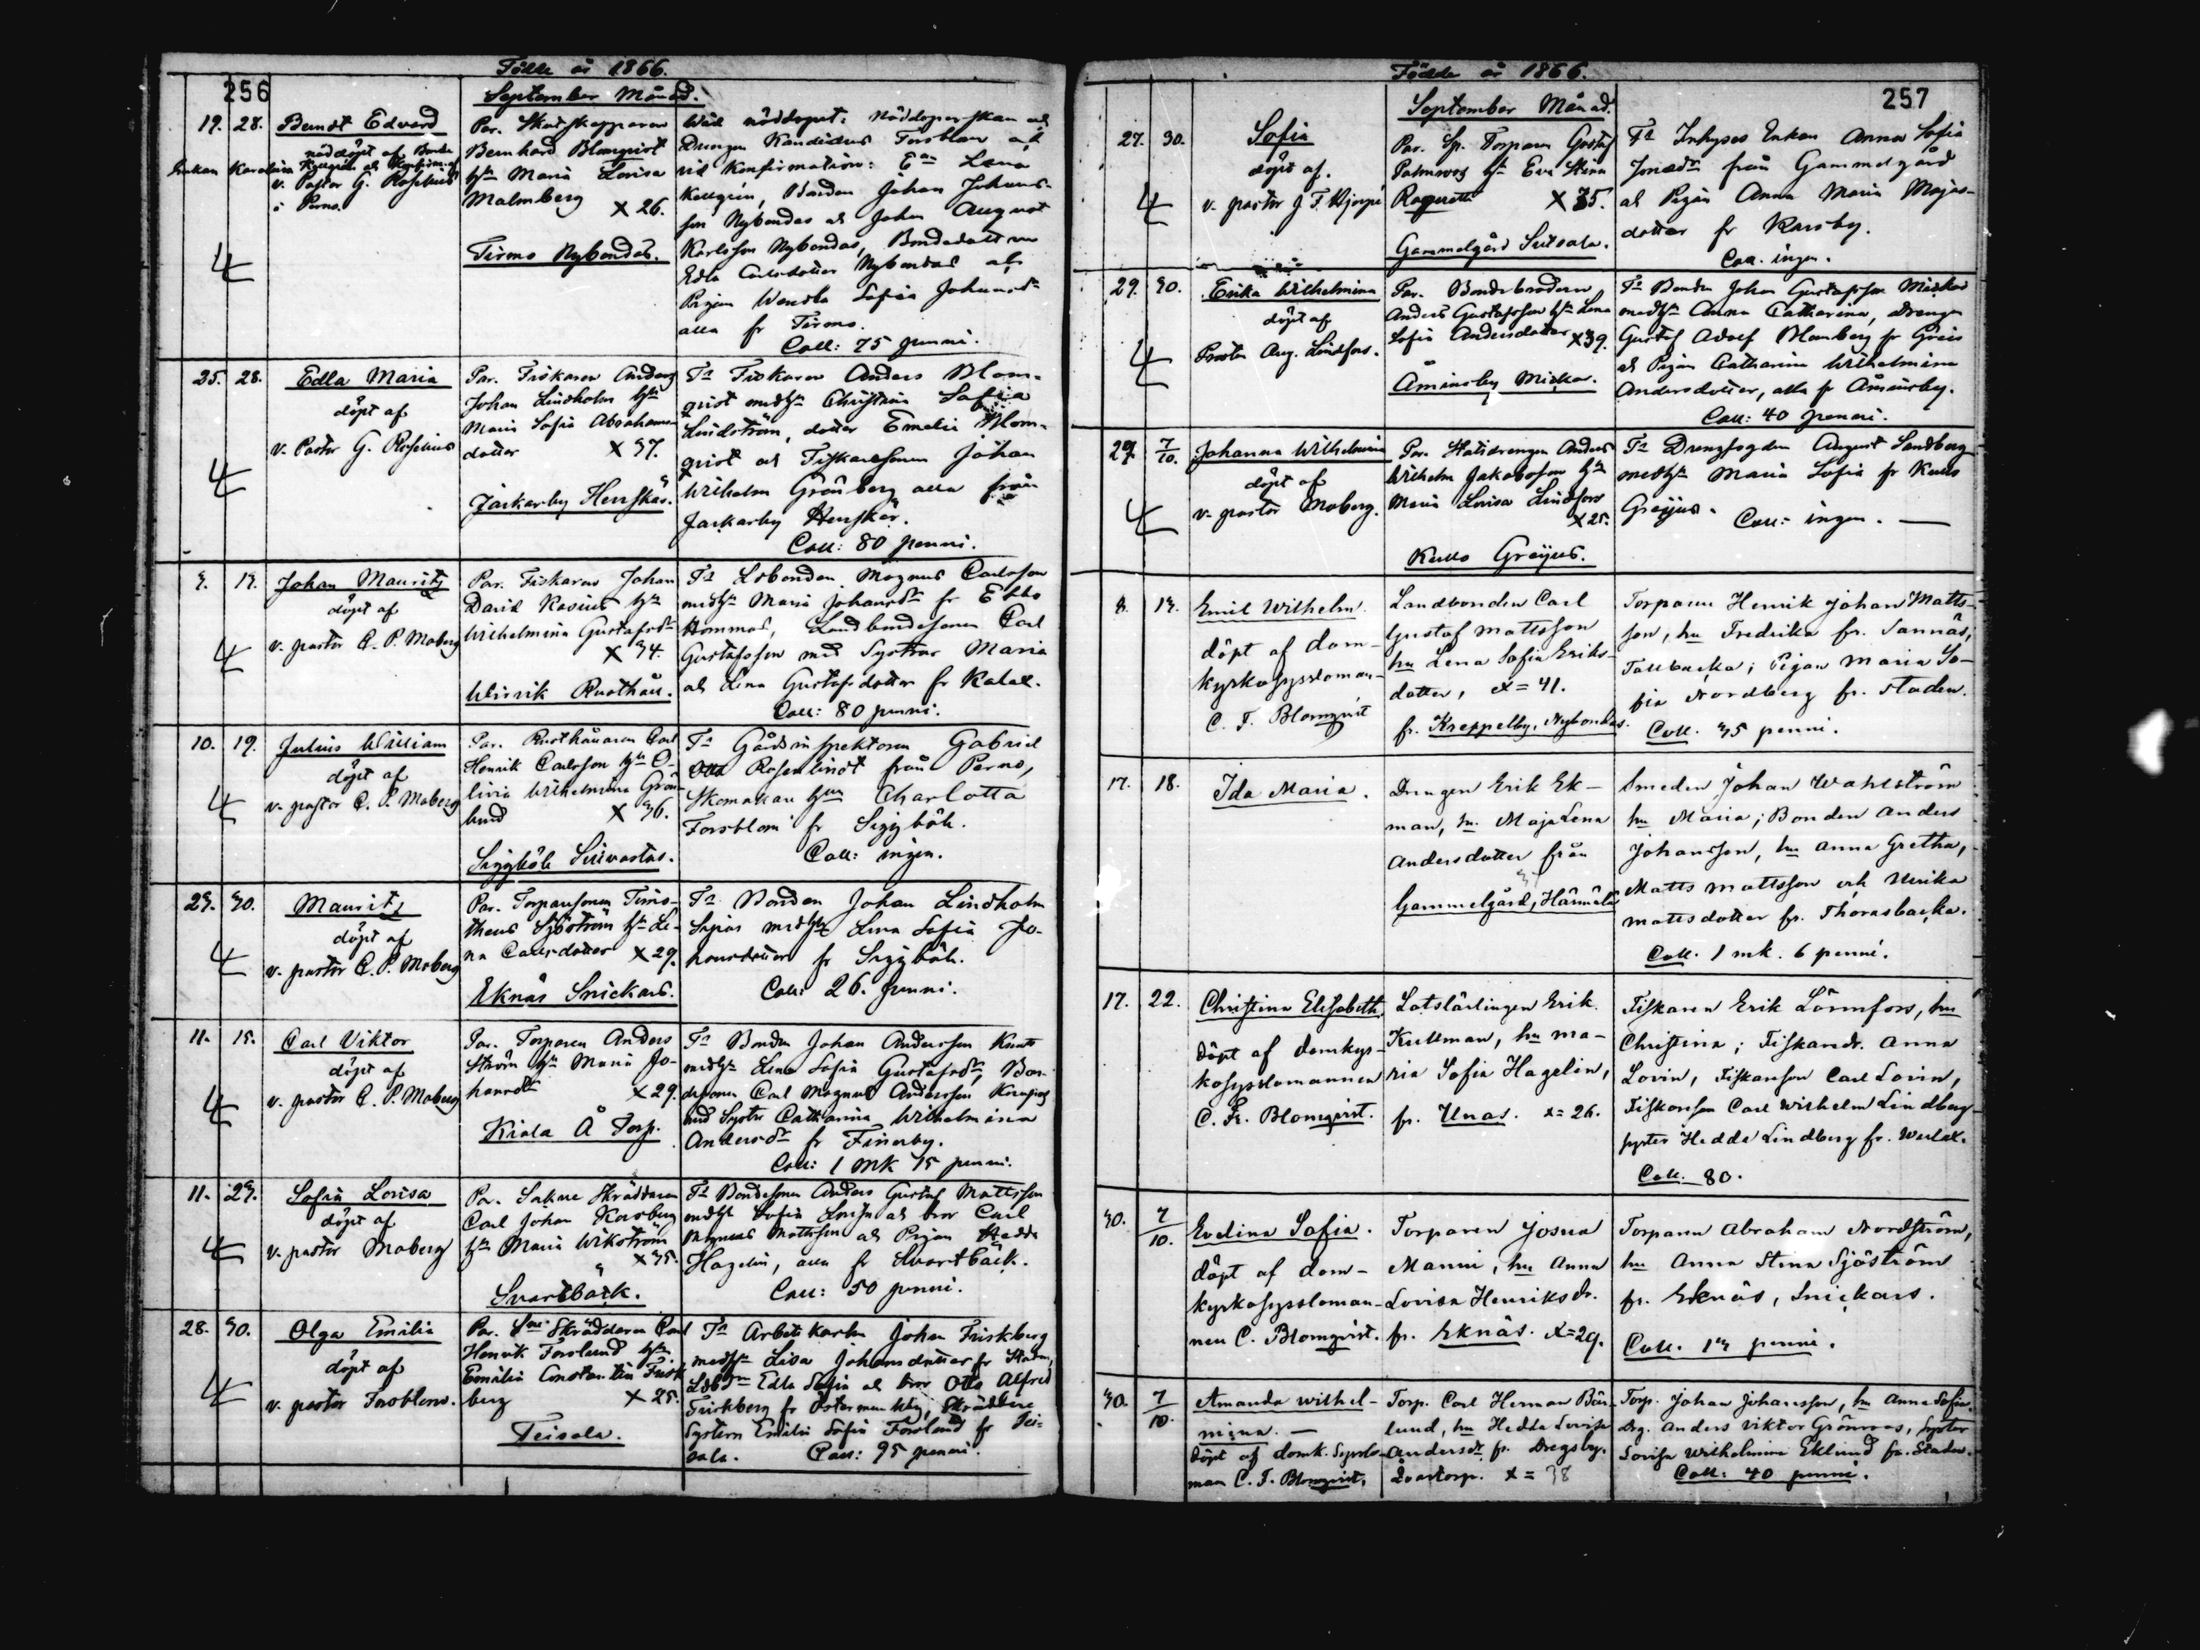 Födde år 1866.
256
September Månad.
19. 28. Berndt Edvard
nöddöpt af Bonde
Enkan Karolina Kjellgrén och Konfirm. af
v. Pastor G. Roselius
i Perno.
Par. Skutskepparen
Bernhard Blomqvist
hu Maria Lovisa
Malmberg X 26.
Tirmo Nybondas.
Wid nöddopet: Nöddoperskan och
Drengen Kandidus Forsblom och
vid Konfirmation: Lena
Kellgrén, Bonden Johan Johans-
son Nybondas och Johan August
Karlsson Nybondas, Bondedottren
Edla Carlsdotter Nybondas och
Pigan Wendla Sofia Johansdr
alla fr Tirmo.
Coll: 75 penni.
25. 28. Edla Maria
döpt af
v. Pastor G. Roselius
Par. Fiskaren Anders
Johan Lindholm hu
Maria Sofia Abrahams
dotter X 37.
Jackarby Herrskär.
Fa Fiskaren Anders Blom-
qvist medhu Christina Sofia
Lindström, dotter Emelie Blom-
qvist och Fiskaresonen Johan
Wilhelm Grönberg alla från
Jackarby Herrskär.
Coll: 80 penni.
Johan Mauritz
döpt af
v. pastor C. P. Moberg
Par. Fiskaren Johan
David Rosius hu
Wilhelmina Gustafsdr
X 34.
Wirvik Rusthåll.
Fa Lsbonden Magnus Carlsson
medhu Maria Johansdr fr Ebbo
Hommas, Landbondesonen Carl
Gustafsson med Systrar Maria
och Lena Gustafsdotter fr Kalax.
Coll: 80 penni.
10. 19. Julius William
döpt af
v. pastor C. P. Moberg
Par. Rusthållaren Carl
Henrik Carlsson hu O-
livia Wilhelmina Grön
lund X 36.
Siggböle Sillvastas.
Fa Gårdsinspektoren Gabriel
Otto Rosenlindt från Perno,
Skomakare hu Charlotta
Forsblom fr Siggböle.
Coll: ingen.
23. 30. Mauritz
döpt af
v. pastor C. P. Moberg
Par. Torparsonen Timo-
theus Sjöström hu Le-
na Carlsdotter X 29.
Eknäs Snickars.
Fa Bonden Johan Lindholm
Sigias medhu Lena Sofia Jo-
hansdotter fr Siggböle.
Coll: 26. penni.
11. 15. Carl Viktor
döpt af
v. pastor C. P. Moberg
Par. Torparen Anders
Ström hu Maria Jo-
hansdr X 29.
Kiala Å Torp.
Fa Bonden Johan Andersson
medhu Lena Sofia Gustafsdr, Bon-
desonen Carl Magnus Andersson
med Syster Catharina Wilhelmina
Andersdr fr Finnby.
Coll: 1 mk 75 penni.
11. 23. Sofia Lovisa
döpt af
v. pastor Moberg
Par. Sockne Skräddaren
Carl Johan Korsberg
hu Maria Wikström
X 35.
Svartbäck.
Fa Bondesonen Anders Gustaf Mattsson
medhu Sofia Lovisa och bror Carl
Magnus Mattsson och Pigan Hedda
Hagelin, alla fr Svartbäck.
Coll: 50 penni.
28. 30. Olga Emilia
döpt af
v. pastor Forsblom.
Par. Skräddaren Carl
Henrik Forslund hu
Emilia Constantia Frisk
berg X 25.
Teisala.
Fa Arbetskarln Johan Friskberg
medhu Lisa Johansdotter fr Staden,
Edla Sofia och bror Otto Alfred
Friskberg fr Östermunkby, Skräddare
Systern Emilia Sofia Forslund fr Tei-
sala. Coll: 95 penni.
Födde år 1866.
257
September Månad.
27. 30. Sofia
döpt af.
v. pastor J. F.
Par. Sp. Torparen Gustaf
Palmroos hu Eva Stina
X 35.
Gammelgård Sutsala.
Fa Inhyses Enkan Anna Sofia
Jonædr från Gammelgård
och Pigan Anna Maria Majas-
dotter fr Karsby.
Coll. ingen.
29. 30. Erika Wilhelmina
döpt af
Prosten Aug. Lindfors.
Par. Bondebrodern
Anders Gustafsson hu Lena
Sofia Andersdotter X 39.
Åminsby Mickos.
Fa Bonden Johan Gustafsson Mickos
medhu Anna Catharina, Drengen
Gustaf Adolf Blomberg fr Greis
och Pigan Catharina Wilhelmina
Andersdotter, alla fr Åminsby.
Coll: 40 penni.
29. 7/10. Johanna Wilhelmina
döpt af
v. pastor Moberg.
Par. Statdrengen Anders
Wilhelm Jakobsson hu
Maria Lovisa Lindfors
X 25.
Kullo Greijus.
Fa Drengfogden August Sandberg
medhu Maria Sofia fr Kullo
Greijus. Coll: ingen. —
8. 13. Emil Wilhelm.
döpt af dom-
kyrkosyssloman-
C. F. Blomqvist
Landbonden Carl
Gustaf Mattsson
hu Lena Sofia Eriks-
dotter, x = 41.
fr. Kreppelby, Nybondas.
Torparen Henrik Johan Matts-
son, hu Fredrika fr. Sannäs,
Tallbacka; Pigan Maria So-
fia Nordberg fr. staden.
Coll. 35 penni.
17. 18. Ida Maria.
Drengen Erik Ek-
man, hu. Maja Lena
Andersdotter från
Gammelgård, Härmälä
Smeden Johan Wahlström
hu Maria; Bonden Anders
Johansson, hu Anna Gretha,
Matts Mattsson och Ulrika
Mattsdotter fr. Thorasbacka.
Coll. 1 mk. 6 penni.
17. 22. Christina Elisabeth.
döpt af domkyr-
kosysslomannen
C. Fr. Blomqvist.
Lotslärlingen Erik
Kullman, hu Ma-
ria Sofia Hagelin,
fr. Unas. x = 26.
Fiskaren Erik Lönnfors, hu
Christina; Fiskaredr. Anna
Lovin, Fiskareson Carl Lovin,
Fiskareson Carl Wilhelm Lindberg
syster Hedda Lindberg fr. Werlax.
Coll. 80.
30. 7/10. Evelina Sofia.
döpt af dom-
kyrkosyssloman-
nen C. Blomqvist.
Torparen Josua
Manni, hu Anna
Lovisa Henriksdr.
fr. Eknäs. x = 29.
Torparen Abraham Nordström,
hu Anna Stina Sjöström
fr. Eknäs, Snickars.
Coll. 13 penni.
30. 7/10. Amanda Wilhel-
mina. —
döpt af domk. Sysslo-
man C. F. Blomqvist.
Torp. Carl Herman Bön-
lund, hu Hedda Lovisa
Andersdr fr. Dregsby.
Qvartorp. x = 38
Torp. Johan Johansson, hu Anna Sofia.
Drg. Anders Viktor Grönroos, syster
Lovisa Wilhelmina Eklund fr. Staden.
Coll: 40 penni.